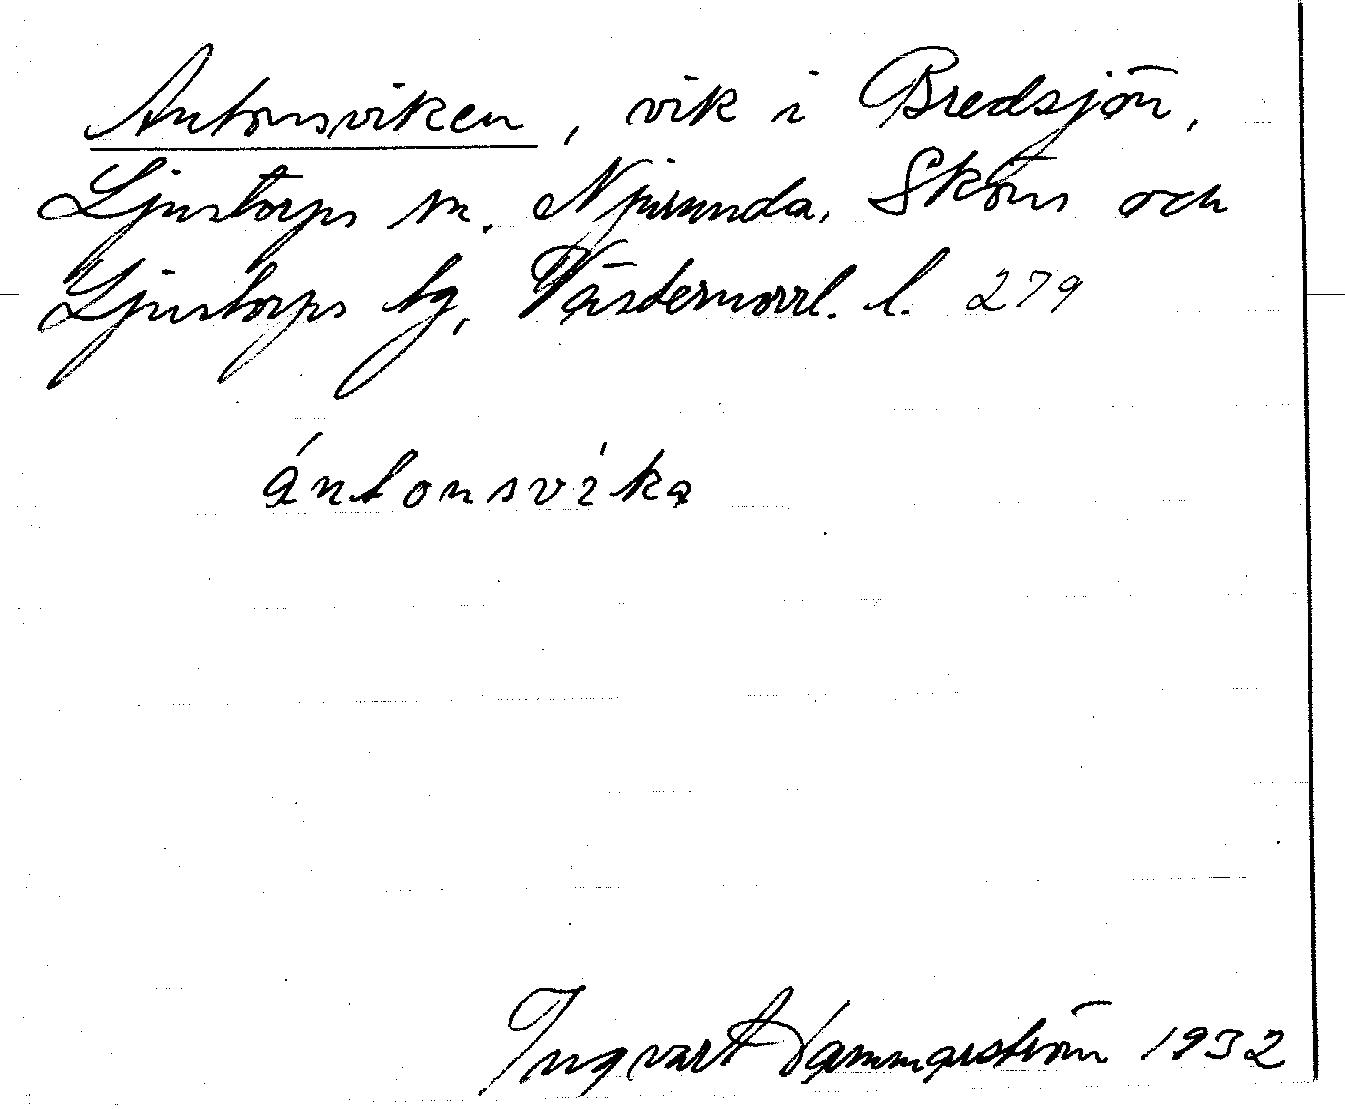 Antonsviken, vik i Bredsjön,
Ljustorps sn. Njurunda, Sköns och
Ljustorps tg, Västernorrl. l. 279
ántonsvíka
Ingvart Hammarström 1932